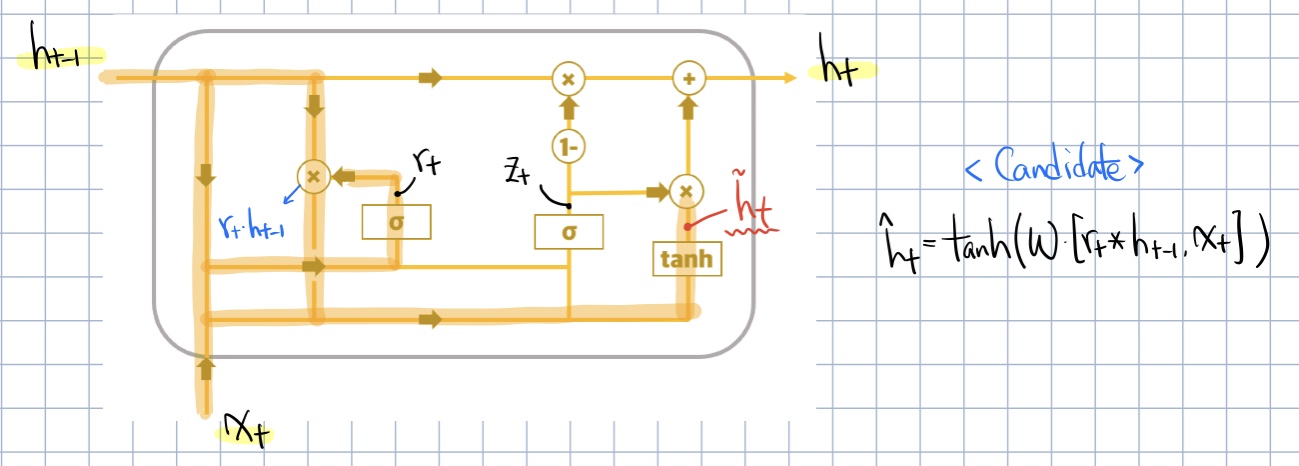 h_{t-1}
h_t
×
+
1-
r_t
z_t
×
×
h̃_t
r_t·h_{t-1}
σ
σ
tanh
x_t
< Candidate >
ĥ_t = tanh(W·[r_t * h_{t-1}, x_t])